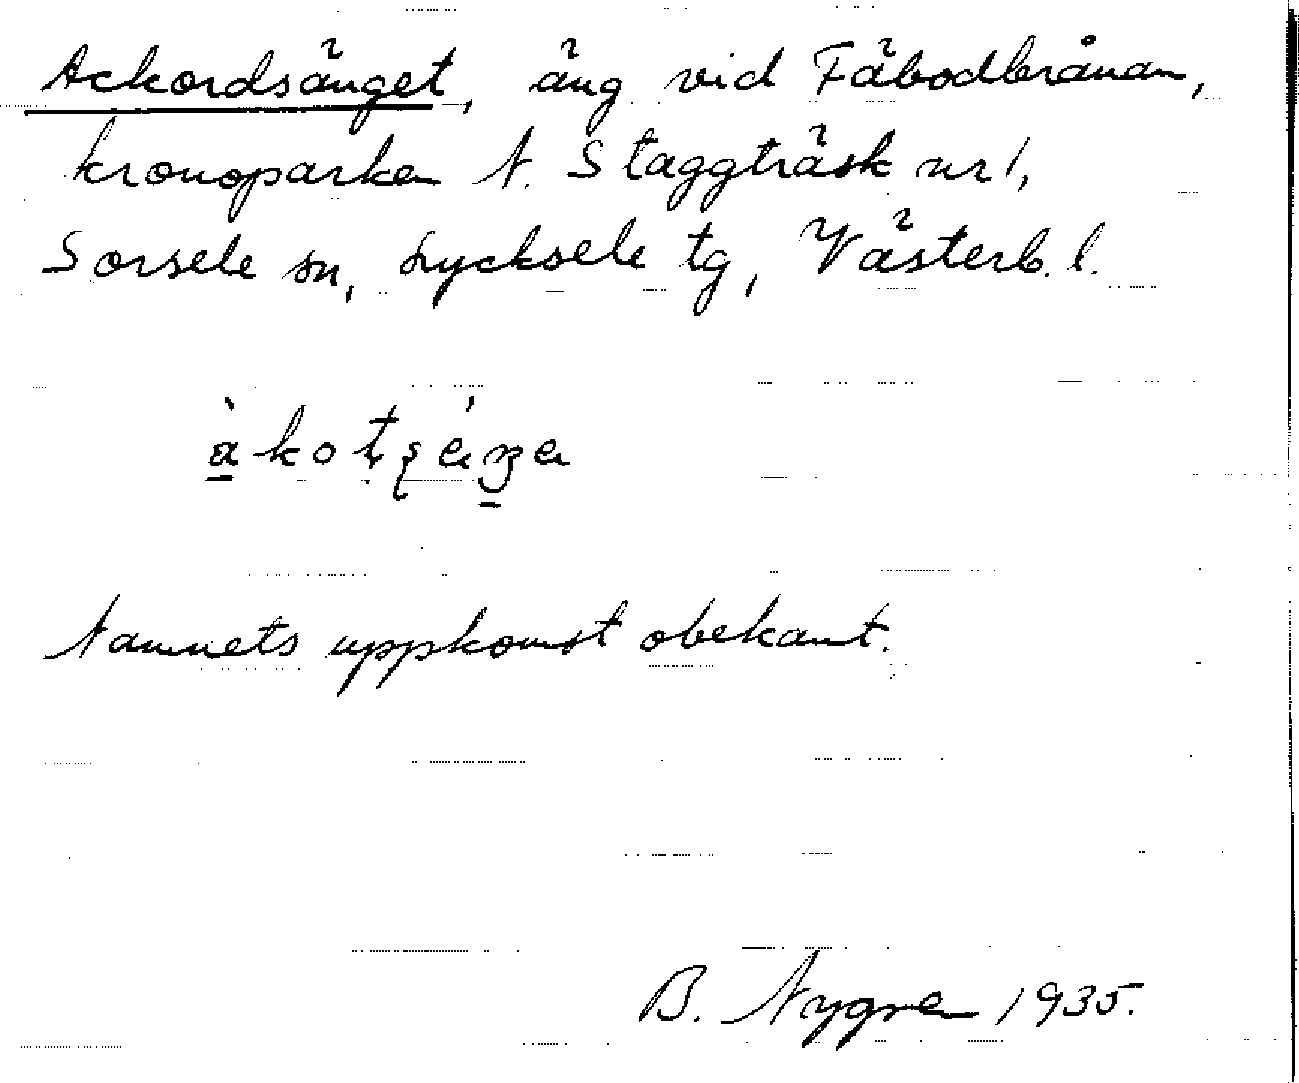 Ackordsänget, äng vid Fäbodbrånan,
kronoparken N. Staggträsk nr 1,
Sorsele sn, Lycksele tg, Västerb. l.
Namnets uppkomst obekant.
B. Nygren 1935.